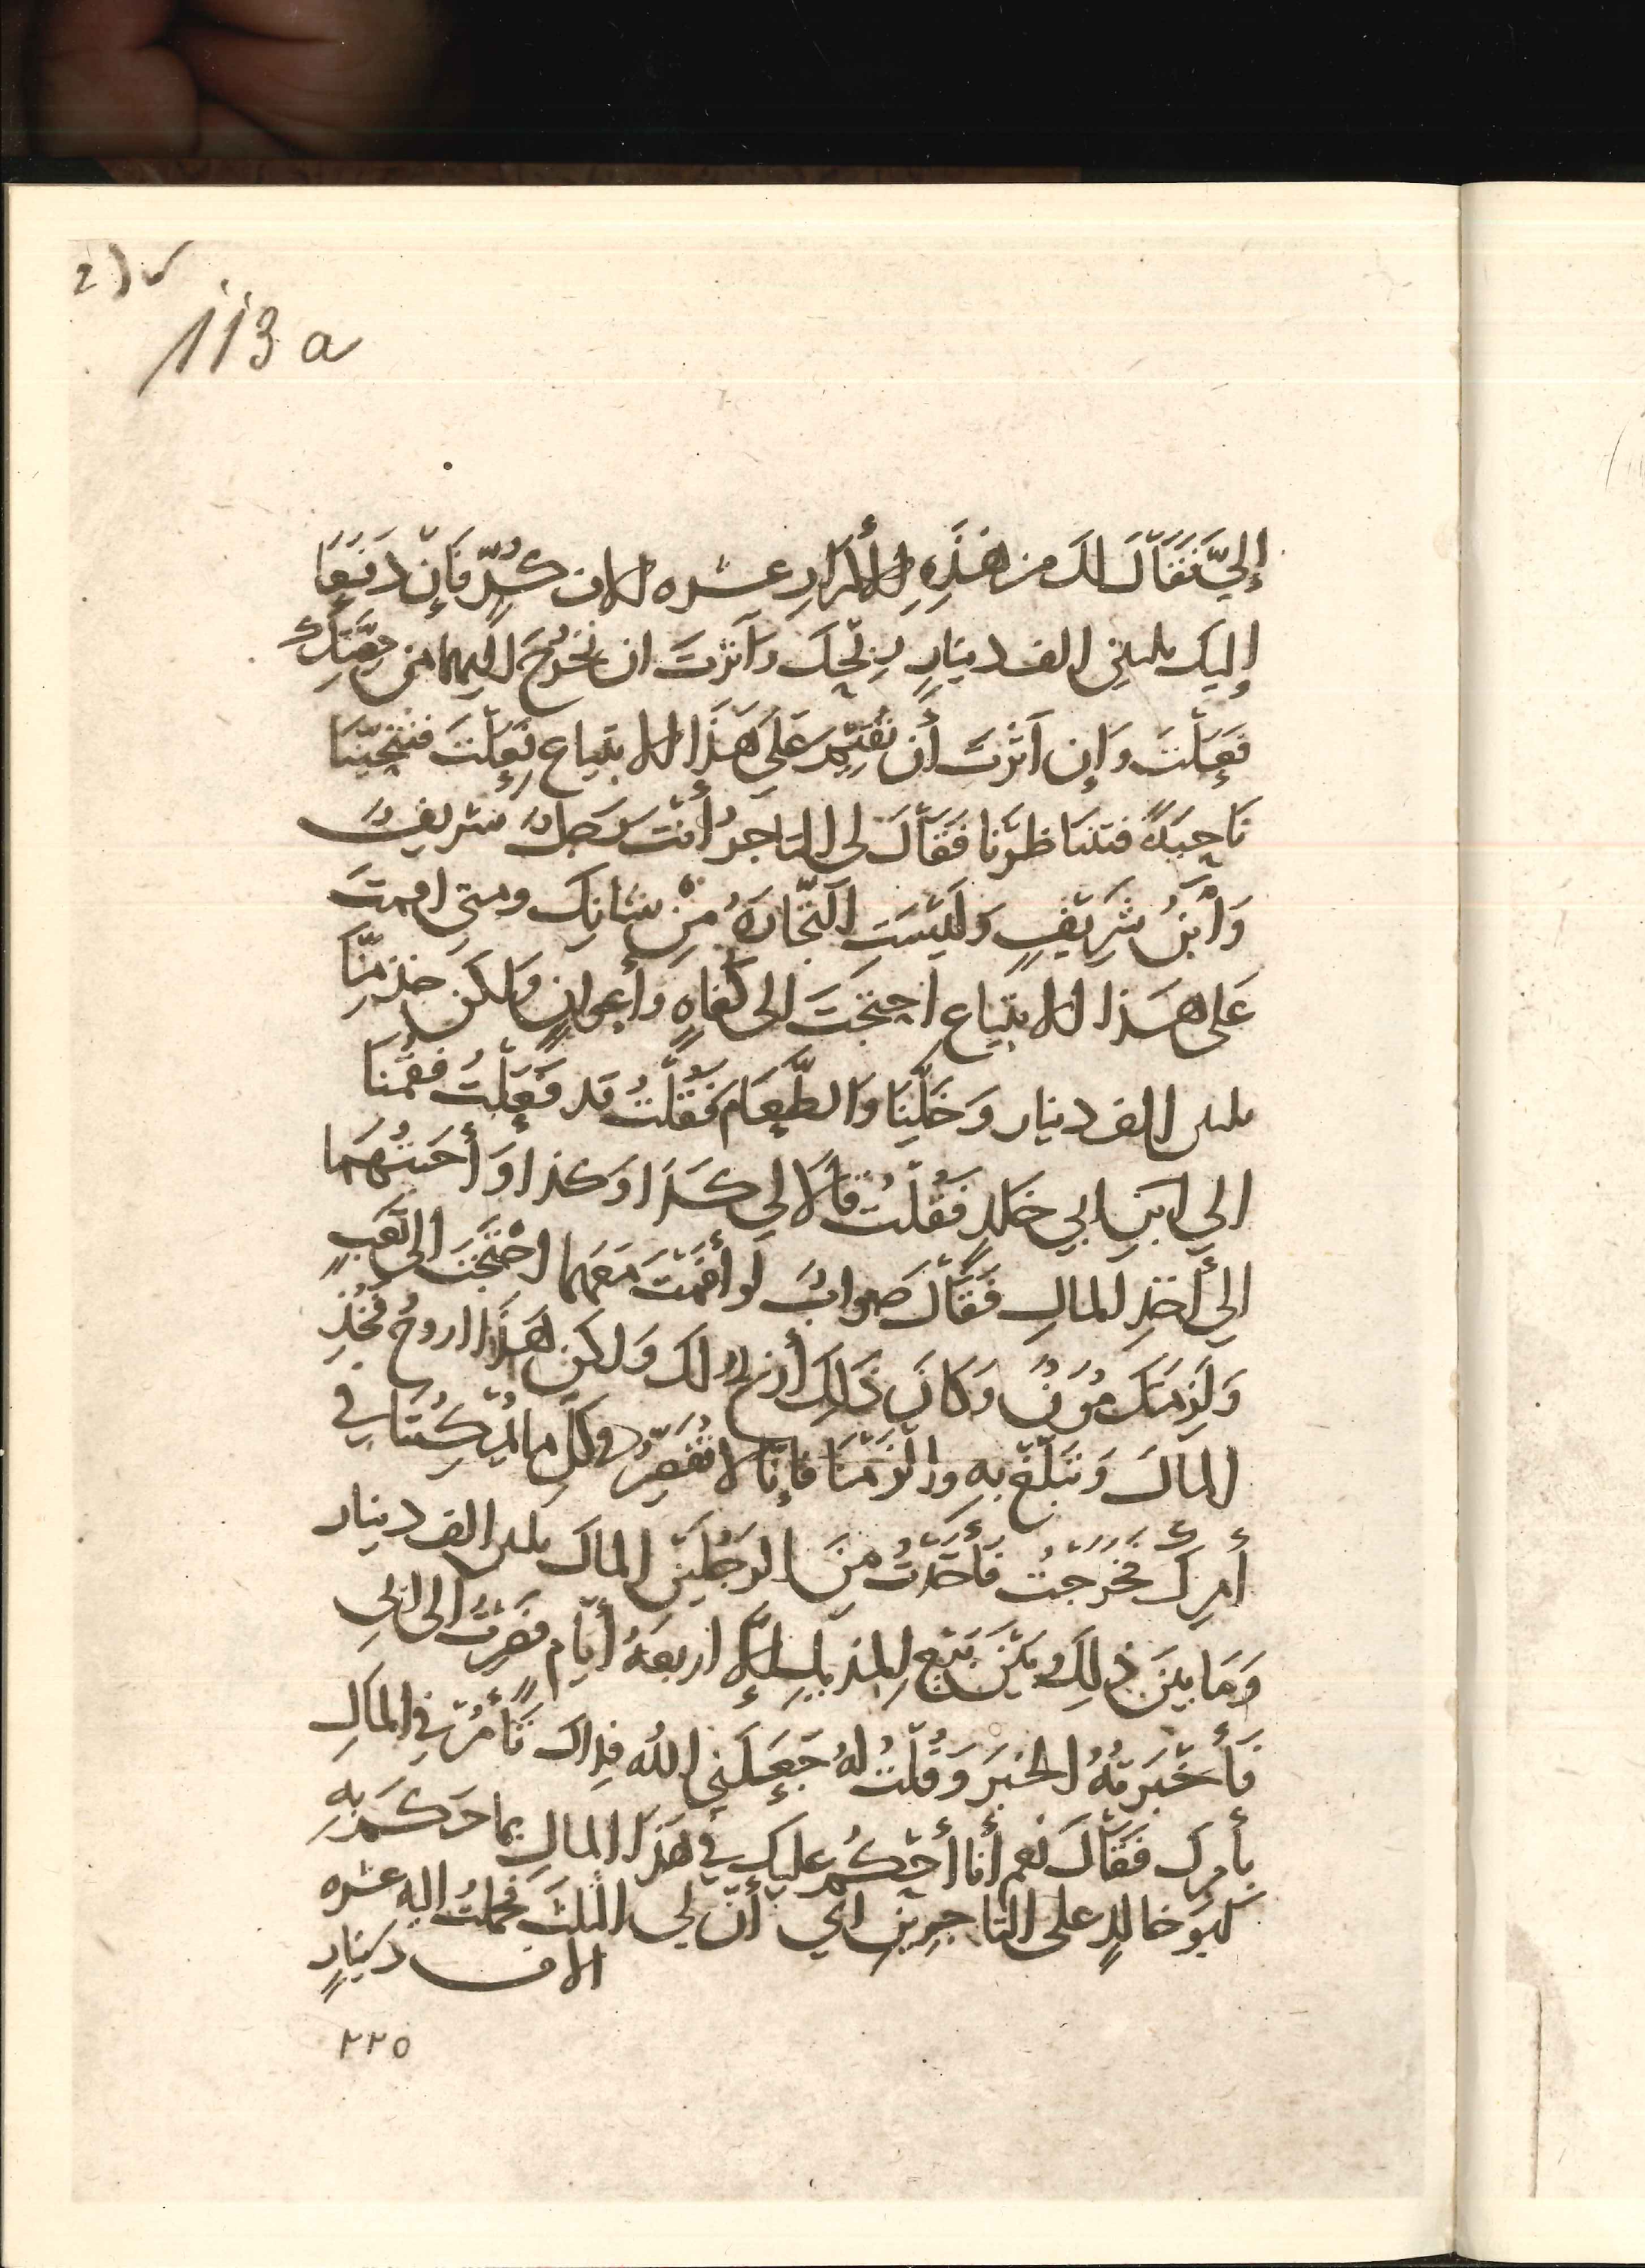 113 a
إِلَيَّ فَقَالَ لك من هَذِهِ الأكرارِ عشره الاف كُرٍّ فَإِنْ دَفَعَا
إليك ثلثين الف دينارٍ رِبْحَكَ وَآثرتَ ان تخرُجَ اليهما من حِصَّتِكَ
فَعَلْتَ وَإن آثرْتَ أن تُقِيمَ عَلى هَذَا الابتياع فَعَلْتَ فتنحّينَا
نَاحِيَةً فتنَاظرْنا فَقَالَ لى التاجرُ أنتَ رَجلٌ شريفٌ
وَابْنُ شَرِيفٍ وَلَيْسَتِ التِّجَارَةُ مِنْ شانِكَ ومتى اقمتَ
عَلى هذا الابتياع احتجتَ الى كفاهٍ وأعوانٍ ولكن خذ مِنَّا
ثلثين الف دينار وَخَلِّنَا والطَّعَام فَقُلْتُ قد فَعَلْتُ فقمْنَا
الي ابنِ ابي خلدٍ فَقُلْتُ قالا لي كذَا وَكذا وَأَجَبْتُهُمَا
الي أخذِ المالِ فَقَالَ صوابٌ لو أقمْتَ مَعَهُما احْتَجْتَ الى تَعَبٍ
وَلَزِمَتْكَ مُؤَنٌ وَكانَ ذَلِكَ أربح لك وَلكن هَذَا اروحُ فخُذِ
المالَ وَتَبَلَّغْ بهِ والْزَمْنَا فإنّا لا نُقَصِّرُ في كلِّ ما يُمْكِنُنَا في
أمرِكَ فخَرَجْتُ فَأَخَذْتُ مِنَ الرَجُلَيْنِ المالَ ثلثين الف دينار
وَمَا بينَ ذَلِكَ وبَيْنَ بَيْعِ المنديلِ إلاّ اربعةُ أيّامٍ فصِرْتُ الى ابي
فَأَخْبَرتُهُ الخبَرَ وَقُلْتُ لَهُ جَعَلَنِي الله فداكَ تَأْمُرُ في المالِ
بأمرِكَ فَقَالَ نعم أنا أَحْكُمُ عليكَ في هَذَا المالِ بما حَكَمَ بهِ
ابو خالدٍ على التاجِرينِ اي أنّ لي الثلثَ فحملتُ اليه عشره
الاف دينارٍ
٢٢٥